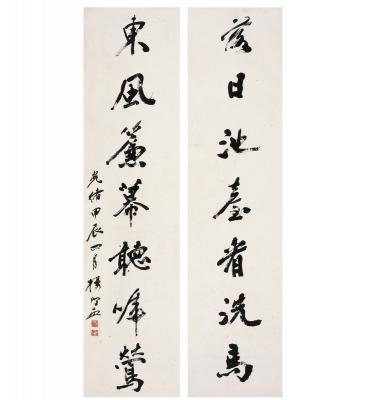 落日池臺看洗馬
東風簾幕聽啼鶯
光緒甲辰四月